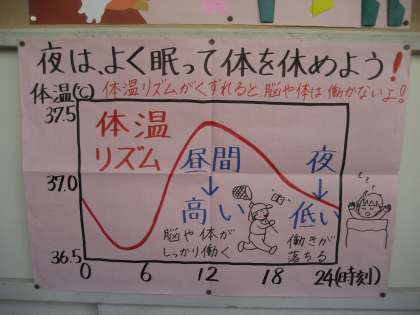 夜は、よく眠って体を休めよう!
体温(℃)
体温リズムがくずれると、脳や体は働かないよ!
37.5
37.0
36.5
体温
リズム
昼間
↓
高い
脳や体が
しっかり働く
夜
↓
低い
働きが
落ちる
0 6 12 18 24(時刻)